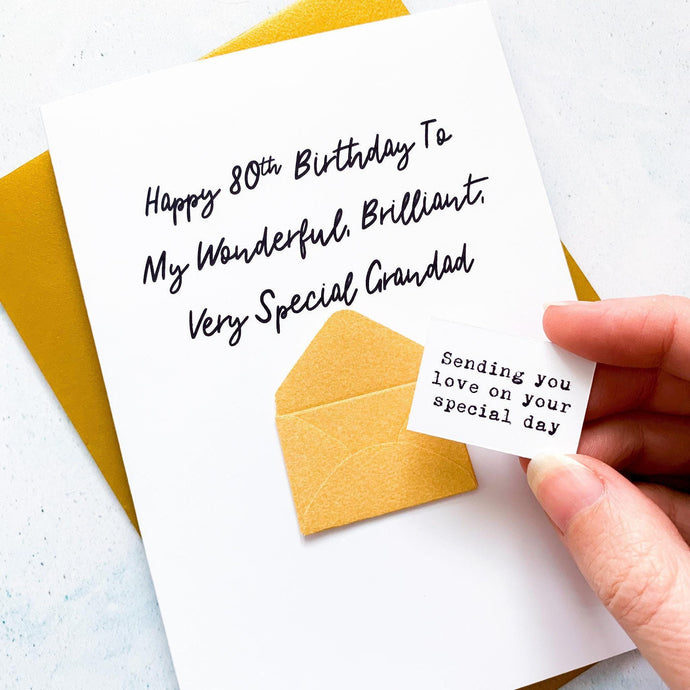 Happy 80th Birthday To
My Wonderful, Brilliant,
Very Special Grandad
Sending you
love on your
special day